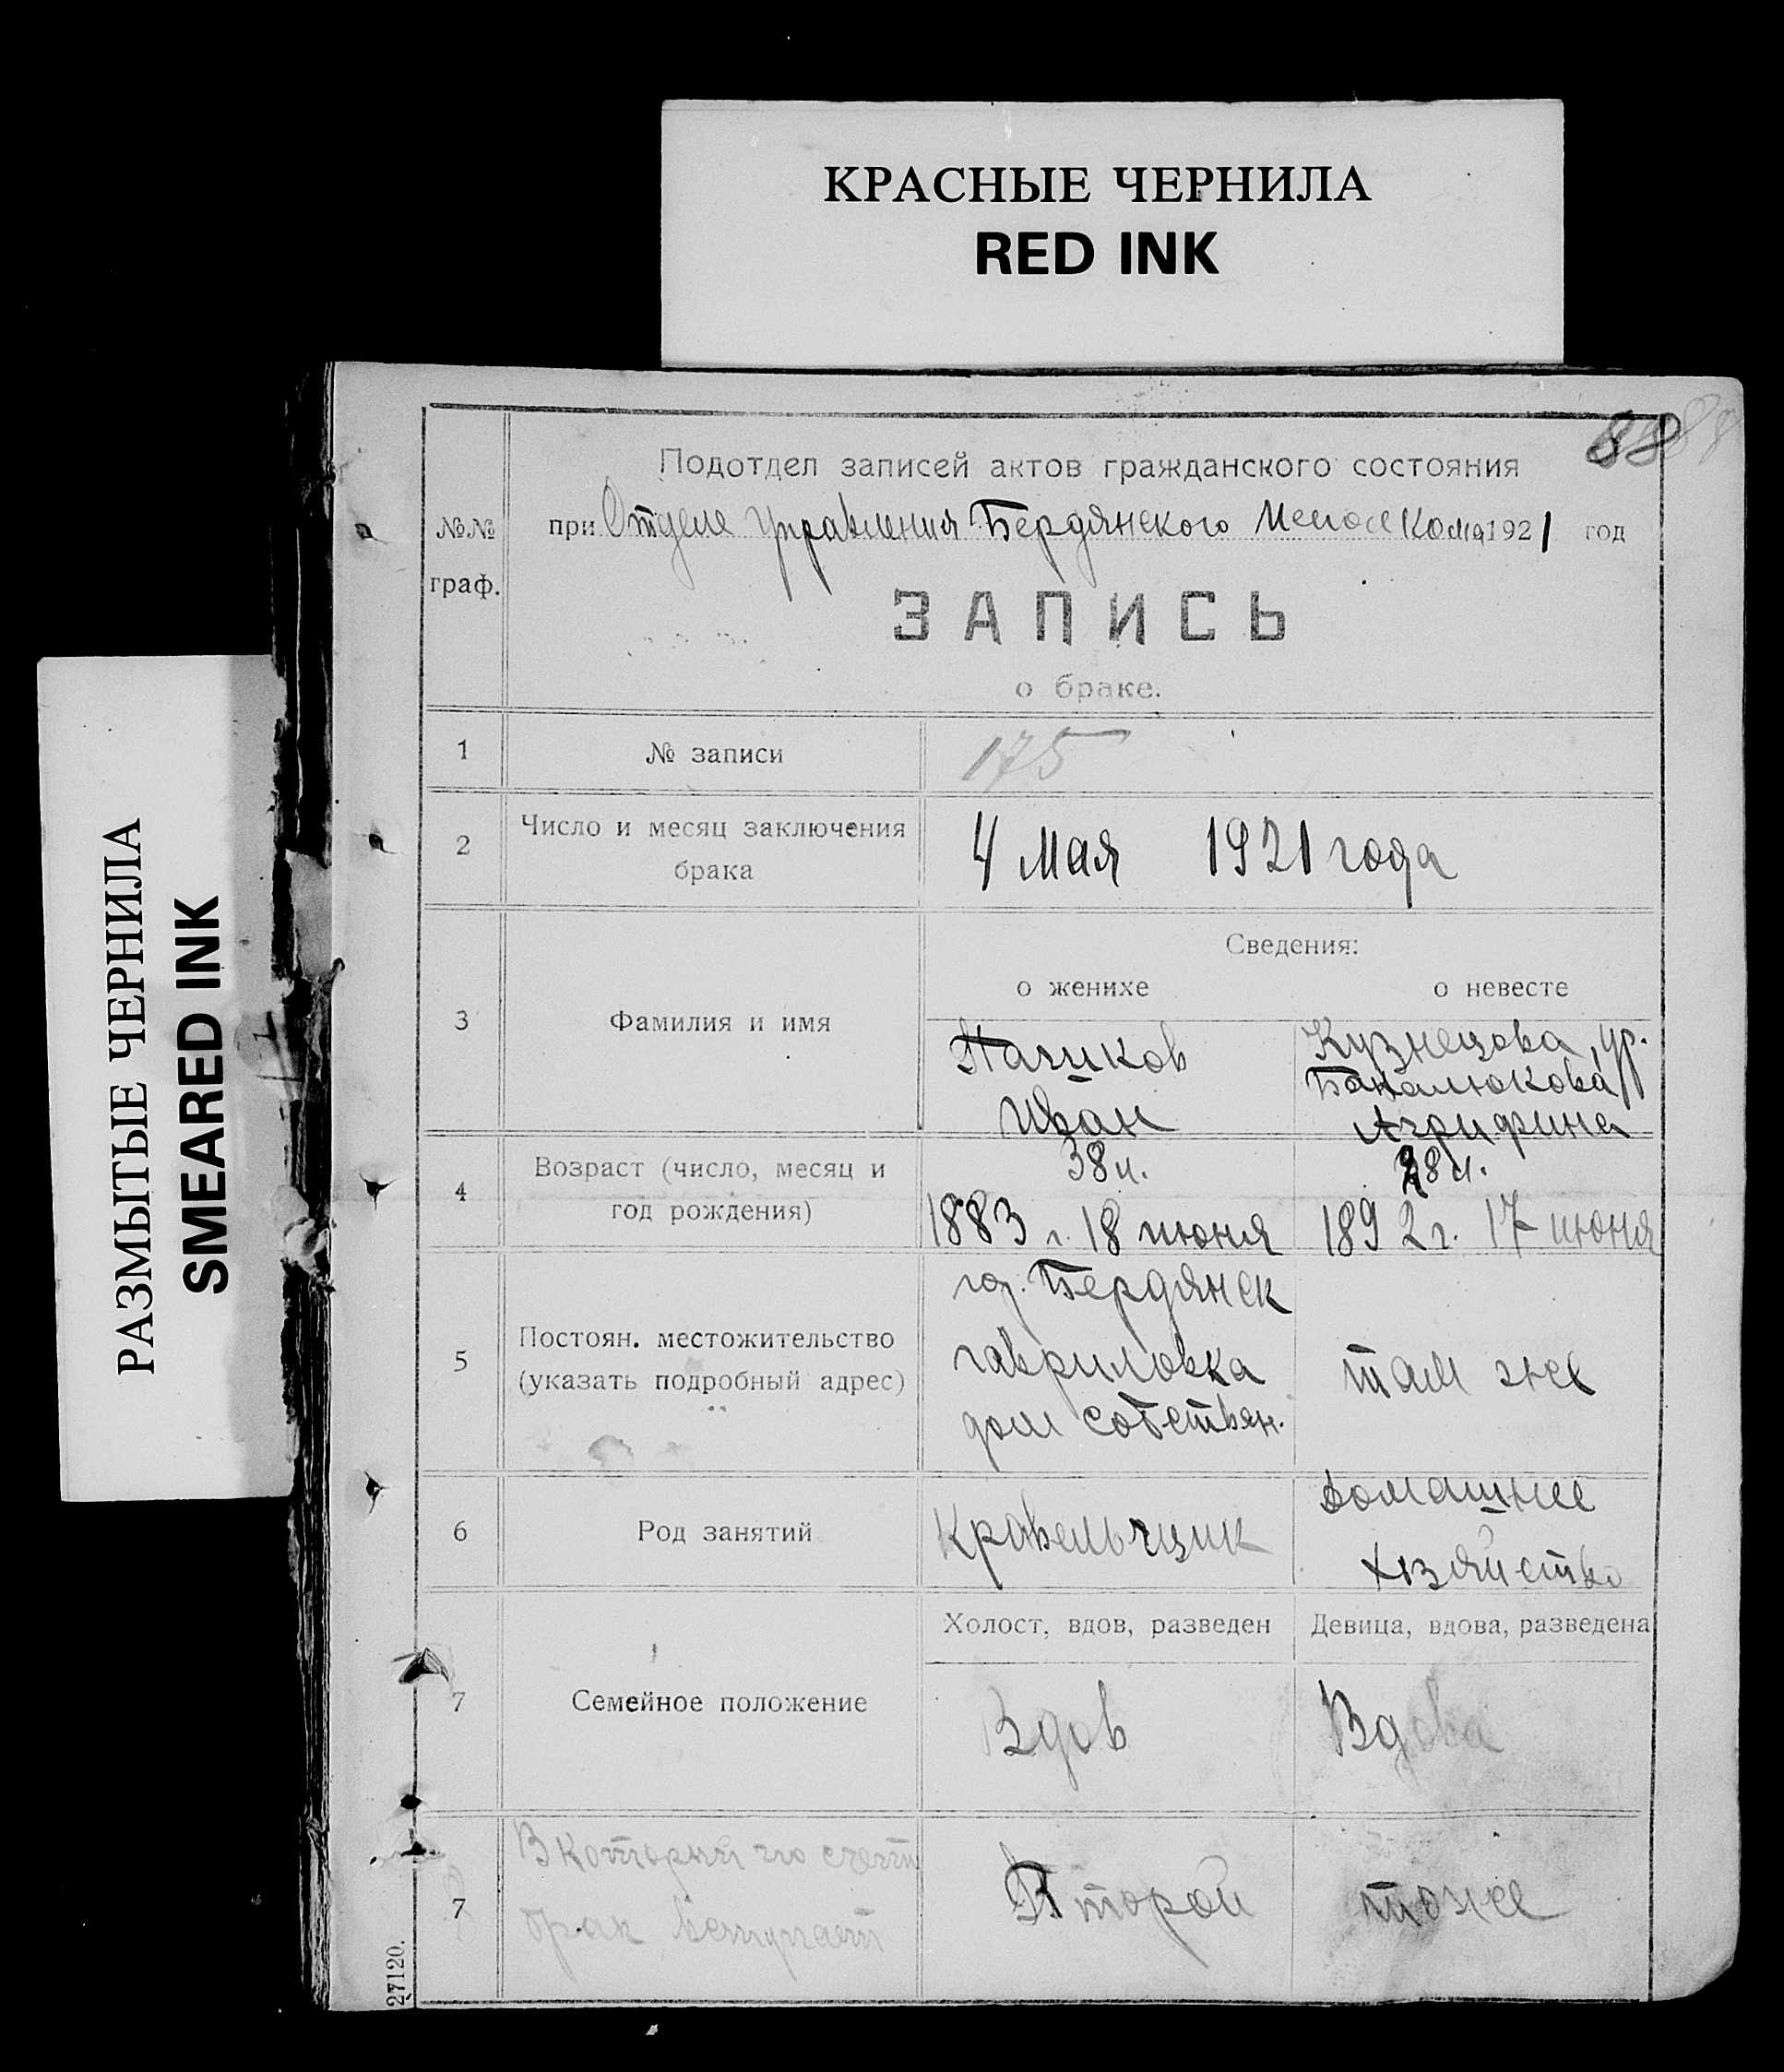 КРАСНЫЕ ЧЕРНИЛА
RED INK
РАЗМЫТЫЕ ЧЕРНИЛА
SMEARED INK
88
№№ граф.
Подотдел записей актов гражданского состояния
при Отделе Управления Бердянского 1921 год
ЗАПИСЬ
о браке.
1 № записи 175
2 Число и месяц заключения 4 мая 1921 года
брака
Сведения:
о женихе о невесте
3 Фамилия и имя
Кузнецова, ур.
Иван Агрифина
38 л. 28 л.
4 Возраст (число, месяц и
год рождения) 1883 г. 18 июня 1892 г. 17 июня
гор. Бердянск
5 Постоян. местожительство гавриловка там же
(указать подробный адрес)
дом собствен.
домашнее
6 Род занятий Кравельчщик
хозяйство
Холост, вдов, разведен Девица, вдова, разведена
7 Семейное положение Вдов Вдова
В который по счету
7 Второй тоже
брак вступает
27120.